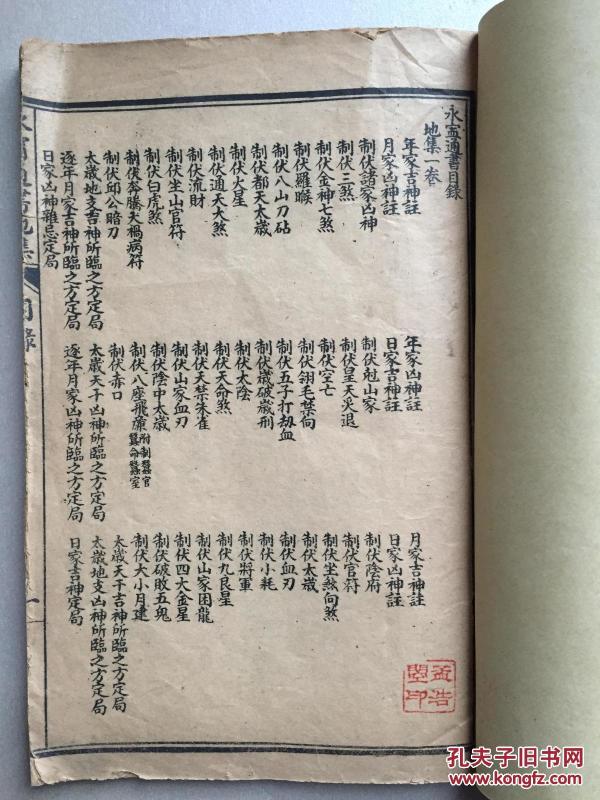 永寧通書目錄
地集一卷
年家吉神註
年家凶神註
月家吉神註
月家凶神註
日家吉神註
日家凶神註
制伏諸家凶神
制伏尅山家
制伏陰府
制伏三煞
制伏皇天災退
制伏官符
制伏金神七煞
制伏空亡
制伏坐煞向煞
制伏羅睺
制伏翎毛禁向
制伏太歲
制伏八山刀砧
制伏五子打劫血
制伏血刃
制伏都天太歲
制伏歲破歲刑
制伏小耗
制伏火星
制伏太陰
制伏將軍
制伏通天大煞
制伏天命煞
制伏九良星
制伏流財
制伏天禁朱雀
制伏山家困龍
制伏坐山官符
制伏山家血刃
制伏四大金星
制伏白虎煞
制伏陰中太歲
制伏破敗五鬼
制伏奔騰大禍病符
制伏八座飛廉附制蠶官蠶命蠶室
制伏大小月建
制伏邱公暗刃
制伏赤口
太歲天干吉神所臨之方定局
太歲地支吉神所臨之方定局
太歲天干凶神所臨之方定局
太歲地支凶神所臨之方定局
逐年月家吉神所臨之方定局
逐年月家凶神所臨之方定局
日家吉神定局
日家凶神雜忌定局
孔夫子旧书网
www.kongfz.com